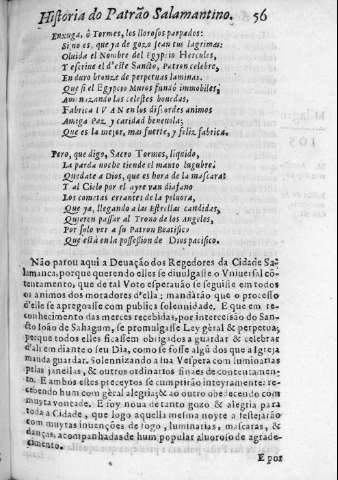 Historia do Patrão Salamantino. 56
Enxuga, ò Tormes, los llorosos parpados:
Si no es, que ya de gozo jean tus lagrimas:
Oluida el Nombre del Egypcio Hercules,
Y escriue el d'este Sancto, Patron celebre,
En duro bronze de perpetuas laminas.
Que si el Egypcio Muros fundò immobiles,
Amenizando las celestes bouedas,
Fabrica IVAN en los discordes animos
Amiga Paz, y caridad beneuola;
Que es la mejor, mas fuerte, y feliz fabrica.
Pero, que digo, Sacro Tormes, liquido,
La parda noche tiende el manto lugubre:
Quedate a Dios, que es hora de la mascara:
Y al Cielo por el ayre van diafano
Los cometas errantes de la poluora,
Que ya, llegando a las Estrellas candidas,
Quieren passar al Trono de los Angeles,
Por solo ver a su Patron Beatifico
Que està en la possession de Dios pacifico.
Não parou aqui a Deuação dos Regedores da Cidade Sa-
lamanca, porque querendo elles se diuulgasse o Vniuersal cō-
tentamento, que de tal Voto esperauão se seguisse em todos
os animos dos moradores d'ella: mandàrão que o processo
d'elle se apregoasse com publica solennidade. E que em re-
conhecimento das merces recebidas, por intercissão do San-
cto Ioão de Sahagum, se promulgasse Ley gèral & perpetua,
porque todos elles ficassem obrigados a guardar & celebrar
d'ali em diante o seu Dia, como se fosse algū dos que a Igreja
manda guardar. Solennizando a lua Vespera com luminarias
pelas janellas, & outros ordinarios finaes de contentamen-
to. E ambos estes preceytos se cumprirão inteyramente: re-
cebendo hum com gèral alegria; & ao outro obedecendo com
muyta vontade. E foy noua de tanto gozo & alegria para
toda a Cidade, que logo aquella mesma noyte a festejarão
com muytas inuenções de fogo, luminarias, mascaras, &
danças, acompanhadas de hum popular aluoroso de agrade-
cimento.
E por